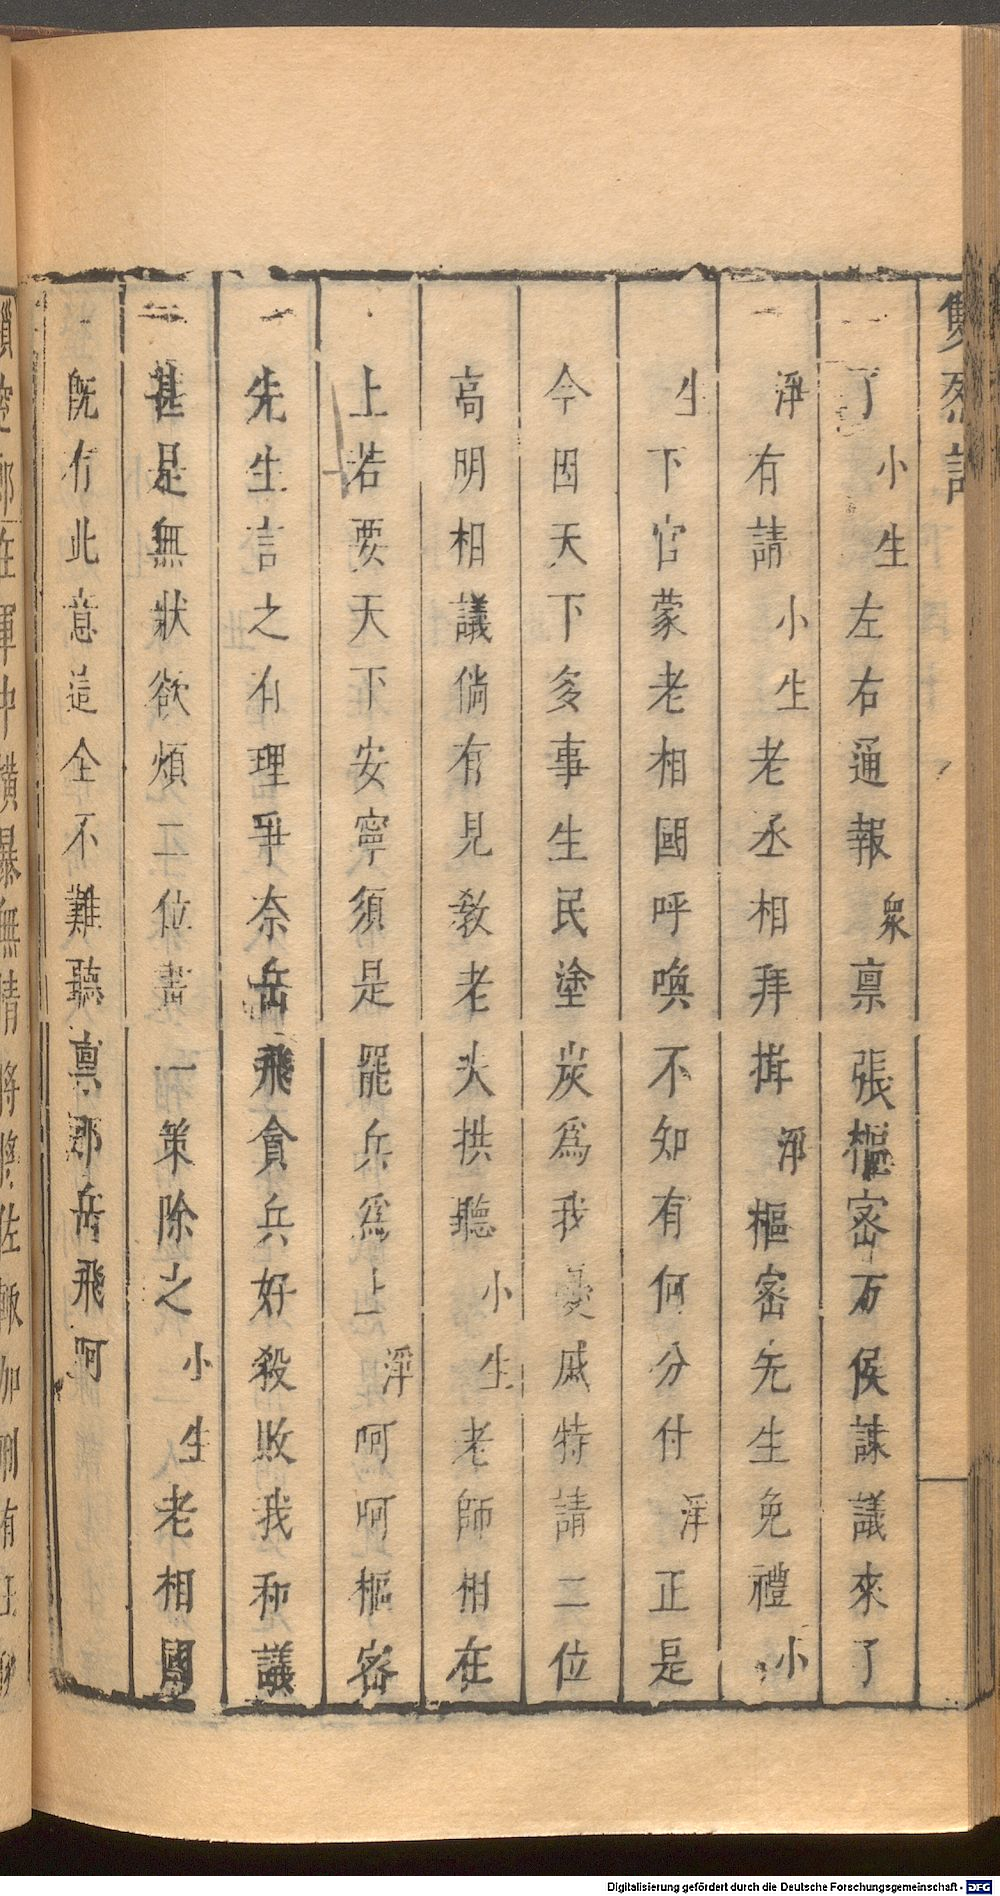 雙烈記
了小生左右通報衆禀張樞密万俟謀議來了
淨有請小生老丞相拜揖淨樞密先生免禮小
生下官蒙老相國呼喚不知有何分付淨正是
今因天下多事生民塗炭爲我憂戚特請二位
高明相議倘有見教老夫拱聽小生老師相在
上若要天下安寧須是罷兵爲上淨呵呵樞密
先生言之有理爭奈岳飛貪兵好殺敗我和議
甚是無狀欲煩二位畫一策除之小生老相國
既有此意這全不難聽禀那岳飛呵
在軍中橫暴無情將將佐輒加刑有
Digitalisierung gefördert durch die Deutsche Forschungsgemeinschaft - DFG